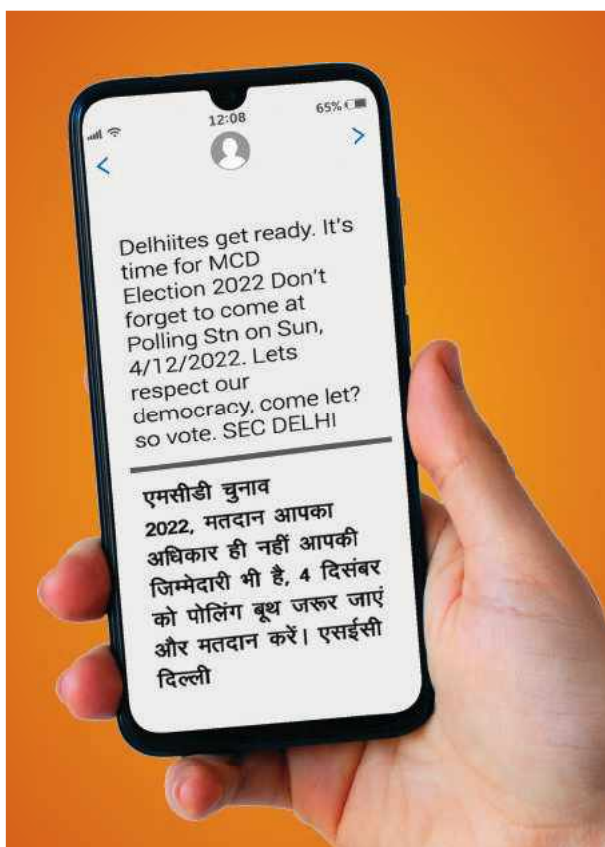 12:08
65%
Delhiites get ready. It's
time for MCD
Election 2022 Don't
forget to come at
Polling Stn on Sun,
4/12/2022. Lets
respect our
democracy, come let?
so vote. SEC DELHI
एमसीडी चुनाव
2022, मतदान आपका
अधिकार ही नहीं आपकी
जिम्मेदारी भी है, 4 दिसंबर
को पोलिंग बूथ जरूर जाएं
और मतदान करें। एसईसी
दिल्ली